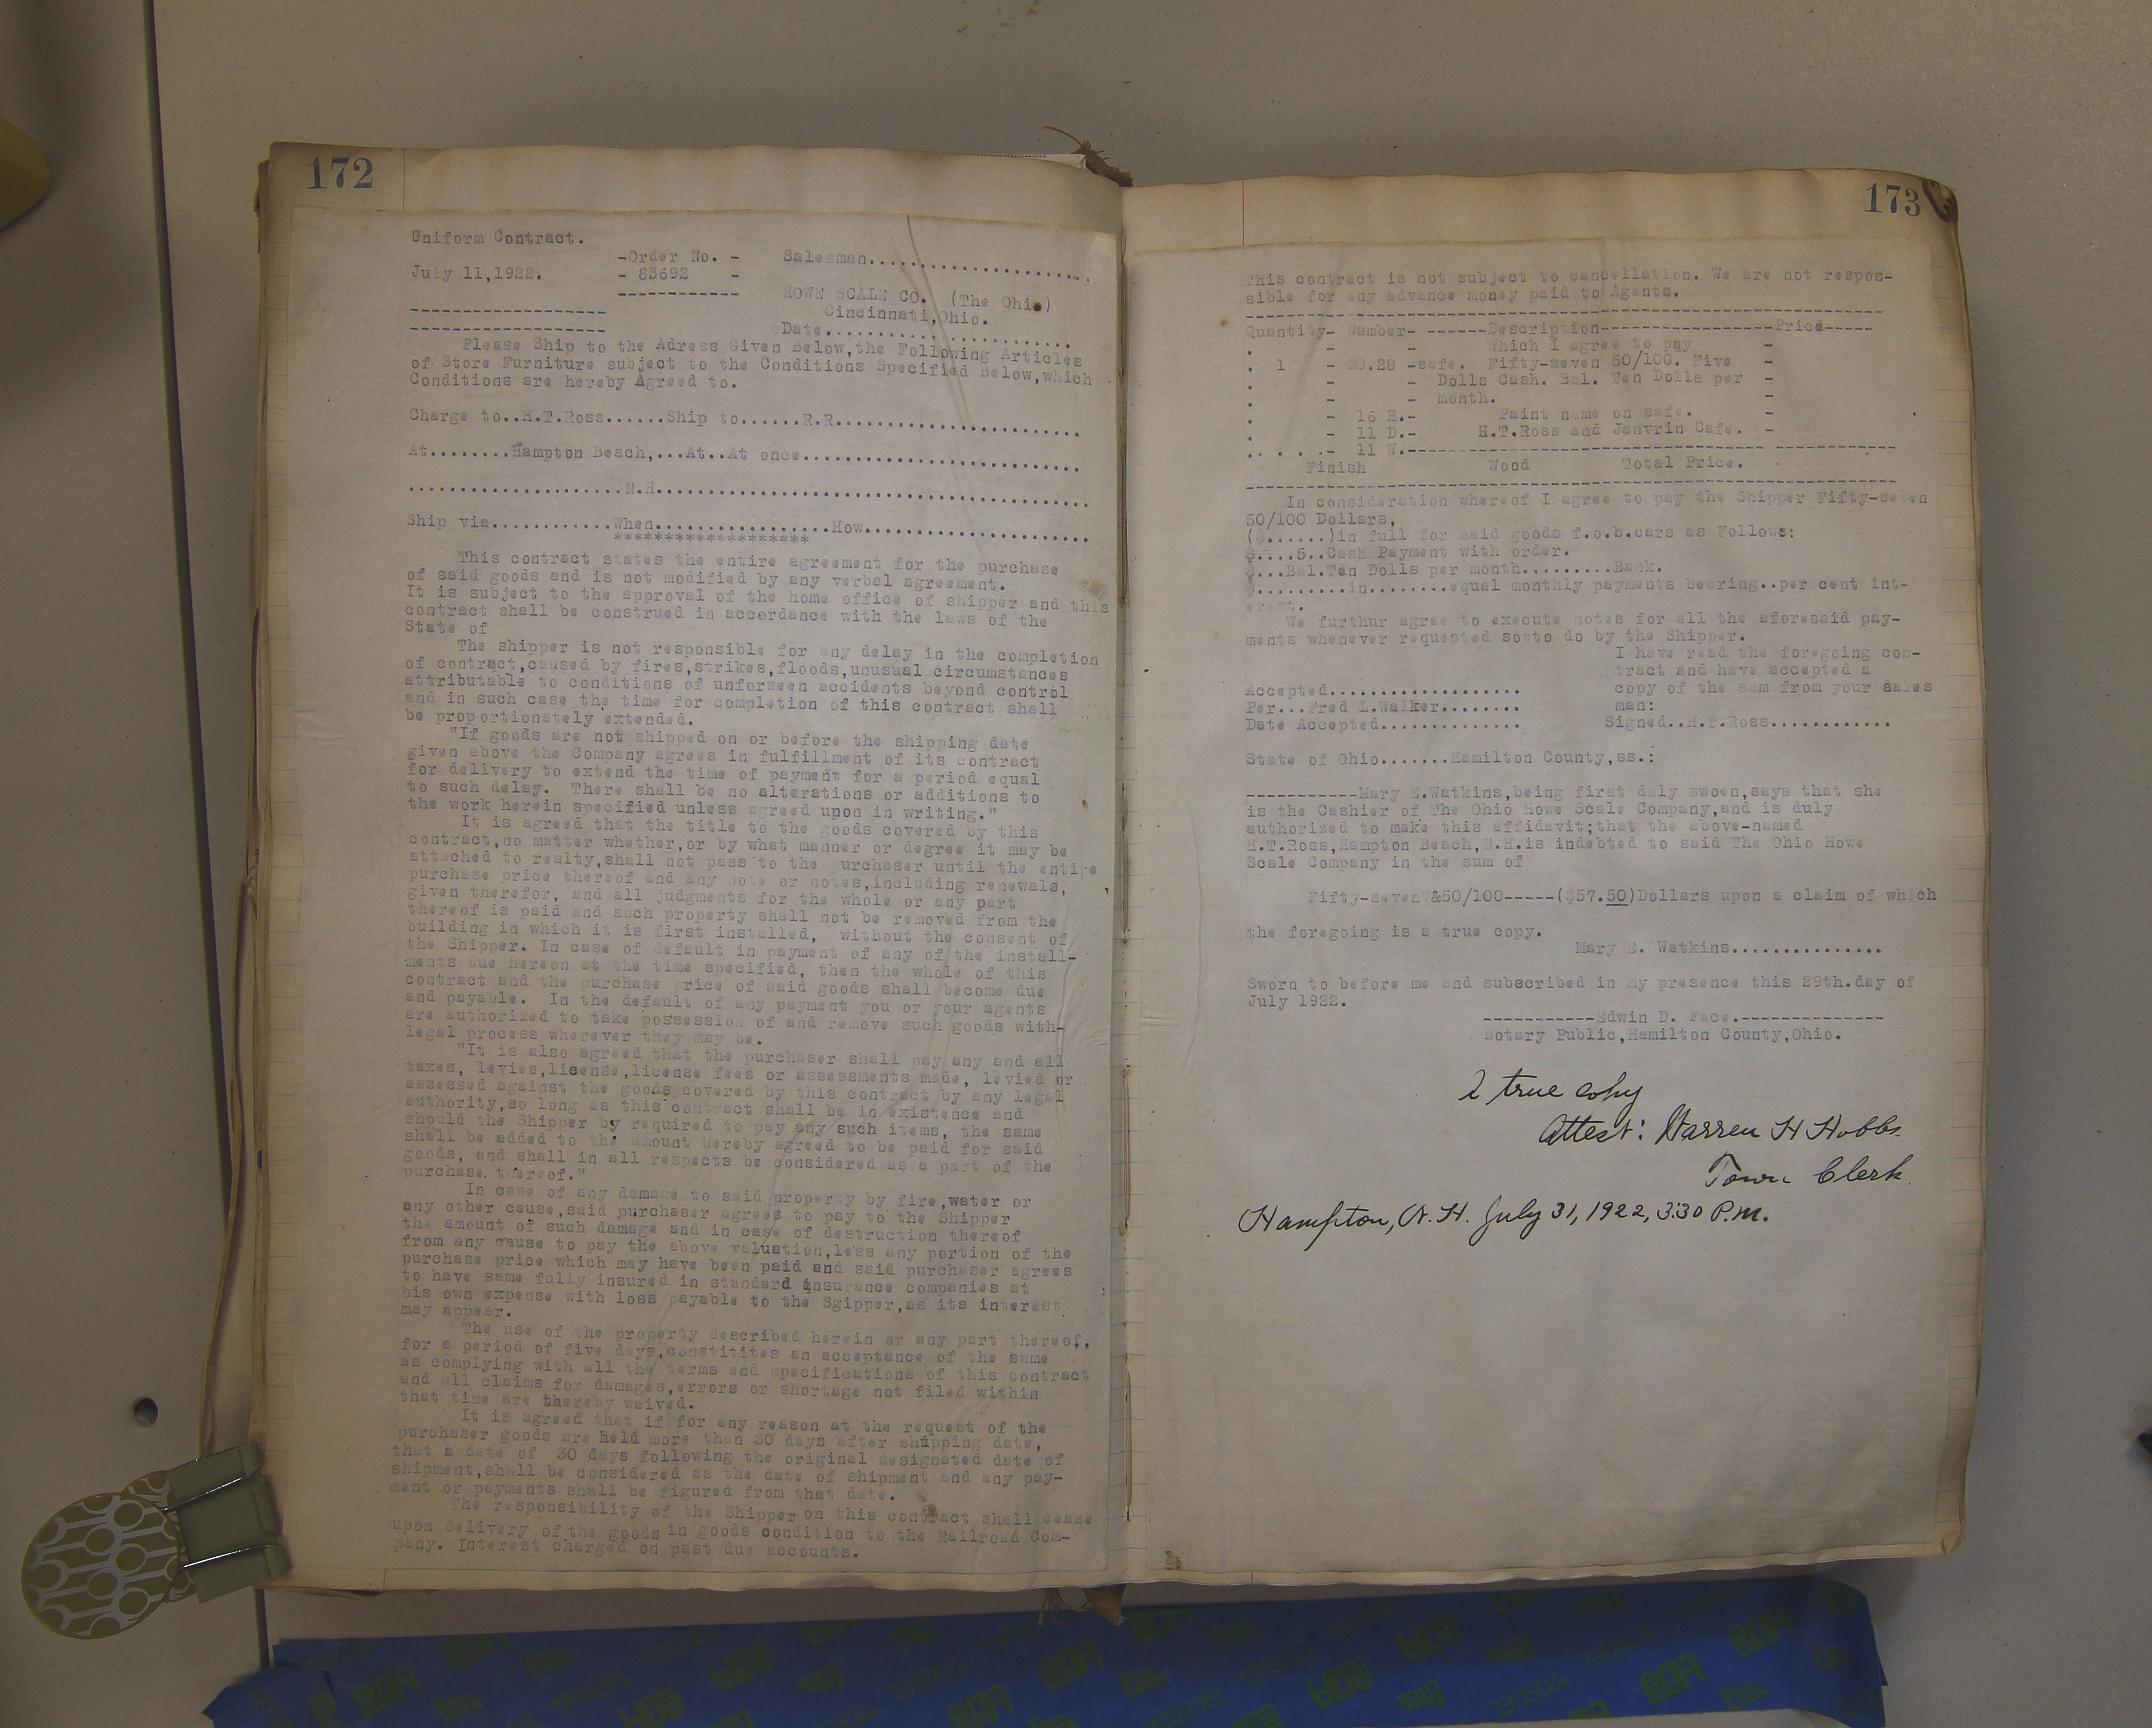 172
Uniform Contract.
-Order No. - Salesman........................
July 11,1922. - 83692 -
------------
HOWE SCALE CO. (The Ohio)
Cincinnati,Ohio.
------------------- Date........................
-------------------
Please Ship to the Adress Given Below,the Following Articles
of Store Furniture subject to the Conditions Specified Below,which
Conditions are hereby Agreed to.
Charge to..H.T.Ross......Ship to......R.R........................
At........Hampton Beach,...At..At once...........................
.....................N.H..........................................
Ship via............When.................How......................
*******************
This contract states the entire agreement for the purchase
of said goods and is not modified by any verbal agreement.
It is subject to the approval of the home office of shipper and this
contract shall be construed in accordance with the laws of the
State of
The shipper is not responsible for any delay in the completion
of contract,caused by fires,strikes,floods,unusual circumstances
attributable to conditions of unforseen accidents beyond control
and in such case the time for completion of this contract shall
be proportionately extended.
"If goods are not shipped on or before the shipping date
given above the Company agrees in fulfillment of its contract
for delivery to extend the time of payment for a period equal
to such delay. There shall be no alterations or additions to
the work herein specified unless agreed upon in writing."
It is agreed that the title to the goods covered by this
contract,no matter whether,or by what manner or degree it may be
attached to realty,shall not pass to the purchaser until the entire
purchase price thereof and any note or notes,including renewals,
given therefor, and all judgments for the whole or any part
thereof is paid and such property shall not be removed from the
building in which it is first installed, without the consent of
the Shipper. In case of default in payment of any of the install-
ments due hereon at the time specified, then the whole of this
contract and the purchase price of said goods shall become due
and payable. In the default of any payment you or your agents
are authorized to take possession of and remove such goods with-
legal process wherever they may be.
"It is also agreed that the purchaser shall pay any and all
taxes, levies,license,license fees or assessments made, levied or
assessed against the goods covered by this contract by any legal
authority,so long as this contract shall be in existence and
should the Shipper by required to pay any such items, the same
shall be added to the amount hereby agreed to be paid for said
goods, and shall in all respects be considered as a part of the
purchase thereof."
In case of any damage to said property by fire,water or
any other cause,said purchaser agrees to pay to the Shipper
the amount of such damage and in case of destruction thereof
from any cause to pay the above valuation,less any portion of the
purchase price which may have been paid and said purchaser agrees
to have same fully insured in standard insurance companies at
his own expense with loss payable to the Sgipper,as its interest
may appear.
The use of the property described herein or any part thereof,
for a period of five days,constitites an acceptance of the same
as complying with all the terms and specifications of this contract
and all claims for damages,errors or shortage not filed within
that time are thereby waived.
It is agreed that if for any reason at the request of the
purchaser goods are held more than 30 days after shipping date,
that a date of 30 days following the original designated date of
shipment,shall be considered as the date of shipment and any pay-
ment or payments shall be figured from that date.
The responsibility of the Shipper on this contract shall cease
upon delivery of the goods in goods condition to the Railroad Com-
pany. Interest charged on past due accounts.
173
This contract is not subject to cancellation. We are not respon-
sible for any advance money paid to Agents.
Quantity- Number- ------Description----------------Price-----
. - - Which I agree to pay -
. 1 - NO.28 -safe. Fifty-seven 50/100. Five -
. - - Dolls Cash. Bal. Ten Dolls per -
. - - month. -
. - 16 H.- Paint name on safe. -
. - 11 D.- H.T.Ross and Janvrin Cafe. -
. . . .- 11 W.-----------------------------------
Finish Wood Total Price.
In consideration whereof I agree to pay the Shipper Fifty-seven
50/100 Dollars,
($......)in full for said goods f.o.b.cars as Follows:
$....5..Cash Payment with order.
$...Bal.Ten Dollars per month.........Bank.
$..........in........equal monthly payments bearing..per cent int-
erest.
We furthur agree to execute notes for all the aforesaid pay-
ments whenever requested sotto do by the Shipper.
I have read the foregoing con-
tract and have accepted a
Accepted................... copy of the sam from your sales
Per...Fred L.Walker........ man:
Date Accepted.............. Signed..H.T.Ross............
State of Ohio.......Hamilton County,ss.:
-----------Mary E.Watkins,being first duly swoen,says that she
is the Cashier of The Ohio Howe Scale Company,and is duly
authorized to make this affidavit;that the above-named
H.T.Ross,Hampton Beach,N.H.is indebted to said The Ohio Howe
Scale Company in the sum of
Fifty-seven&50/100-----($57.50)Dollars upon a claim of which
the foregoing is a true copy.
Mary E. Watkins...............
Sworn to before me and subscribed in my presence this 29th.day of
July 1922.
-----------Edwin D. Face.--------------
Notary Public,Hamilton County,Ohio.
A true copy
Attest: Warren H Hobbs
Town Clerk.
Hampton, N. H. July 31, 1922, 3:30 P.M.